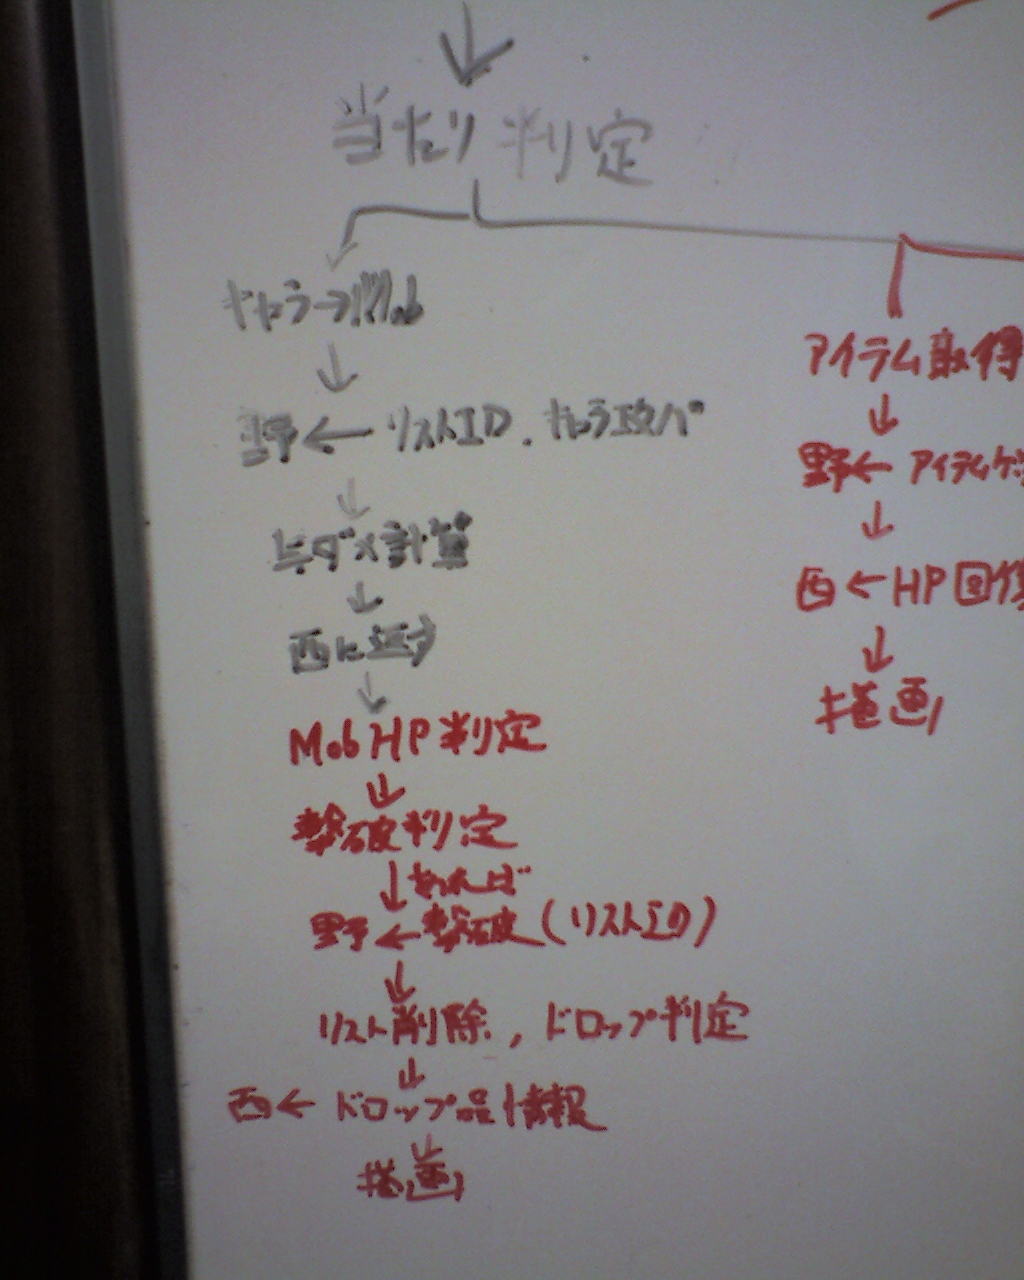 ↓
当たり判定
キャラ→Mob
↓
野←リストID、キャラ攻パ
↓
与ダメ計算
↓
西に返す
↓
MobHP判定
↓
撃破判定
↓あれば
野←撃破(リストID)
↓
リスト削除，ドロップ判定
↓
西←ドロップ品情報
↓
描画
アイテム取得
↓
野←アイテム
↓
西←HP回復
↓
描画